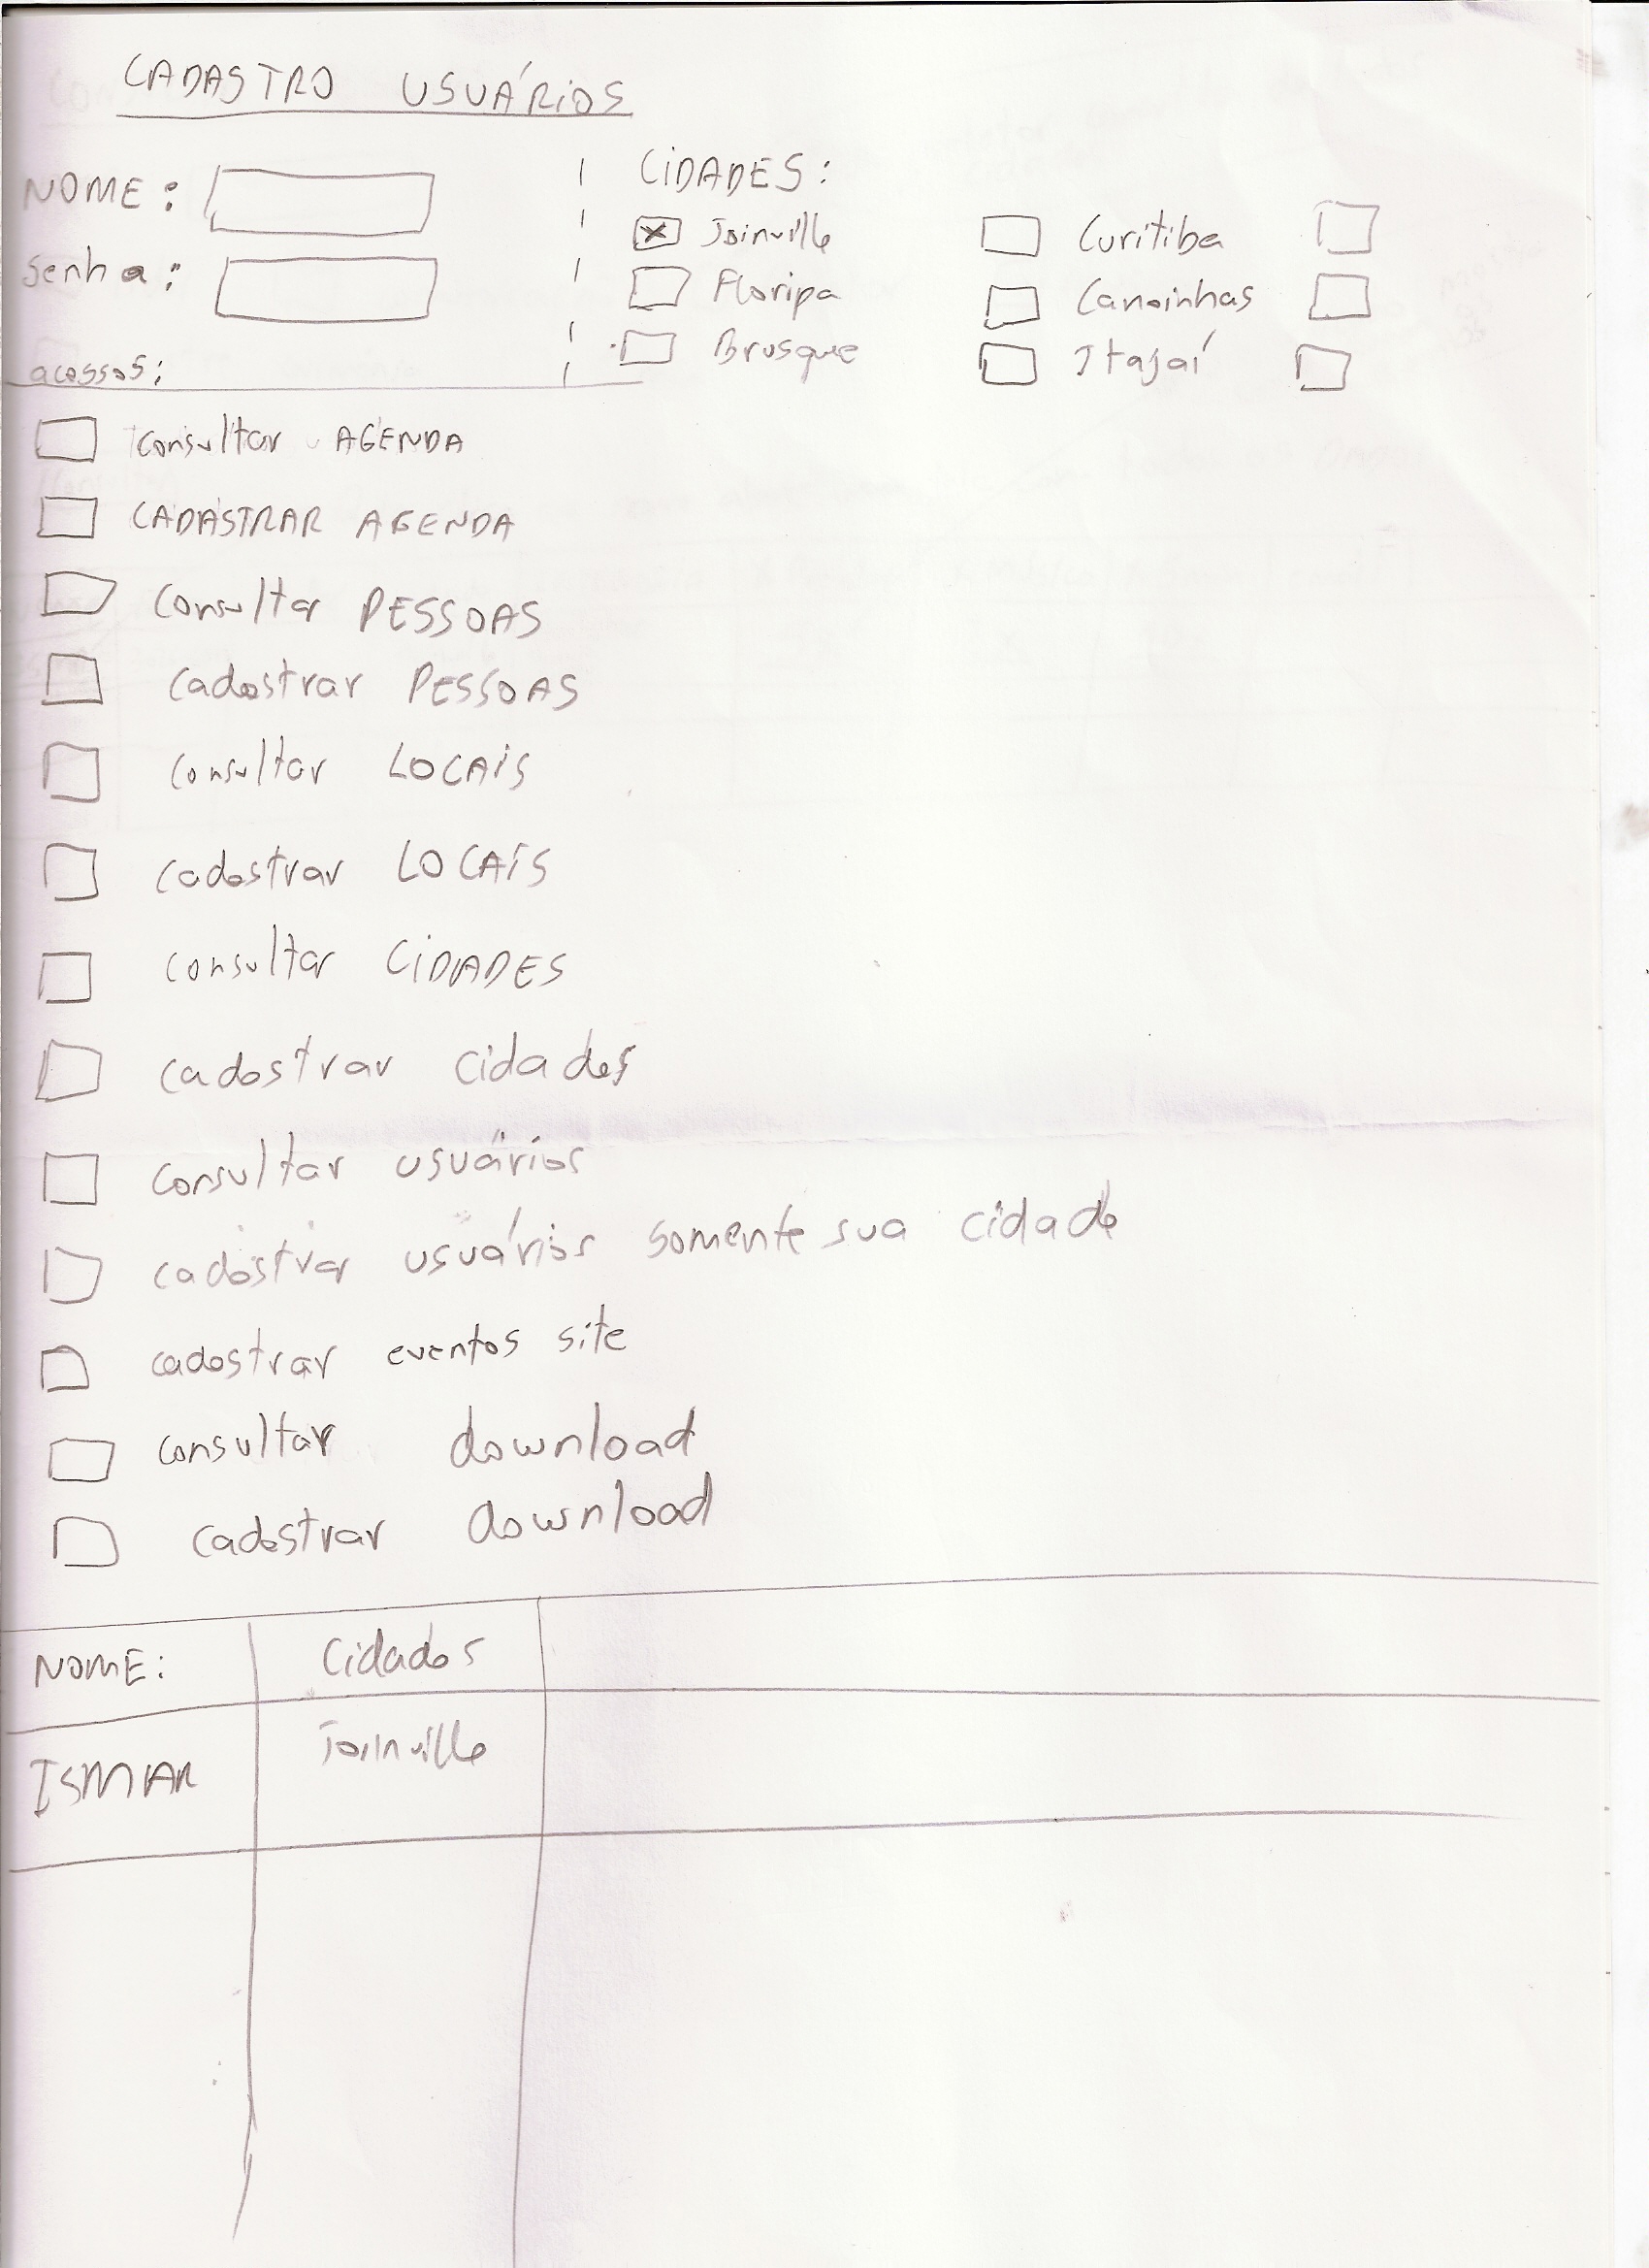 CADASTRO USUÁRIOS
NOME:
Senha:
CIDADES:
Joinville Curitiba
Floripa Canoinhas
Brusque Itajaí
acessos:
Consultar AGENDA
CADASTRAR AGENDA
Consultar PESSOAS
Cadastrar PESSOAS
Consultar LOCAIS
cadastrar LOCAIS
consultar CIDADES
cadastrar cidades
consultar usuários
cadastrar usuários somente sua cidade
cadastrar eventos site
consultar download
cadastrar download
NOME: Cidades
ISMAR Joinville